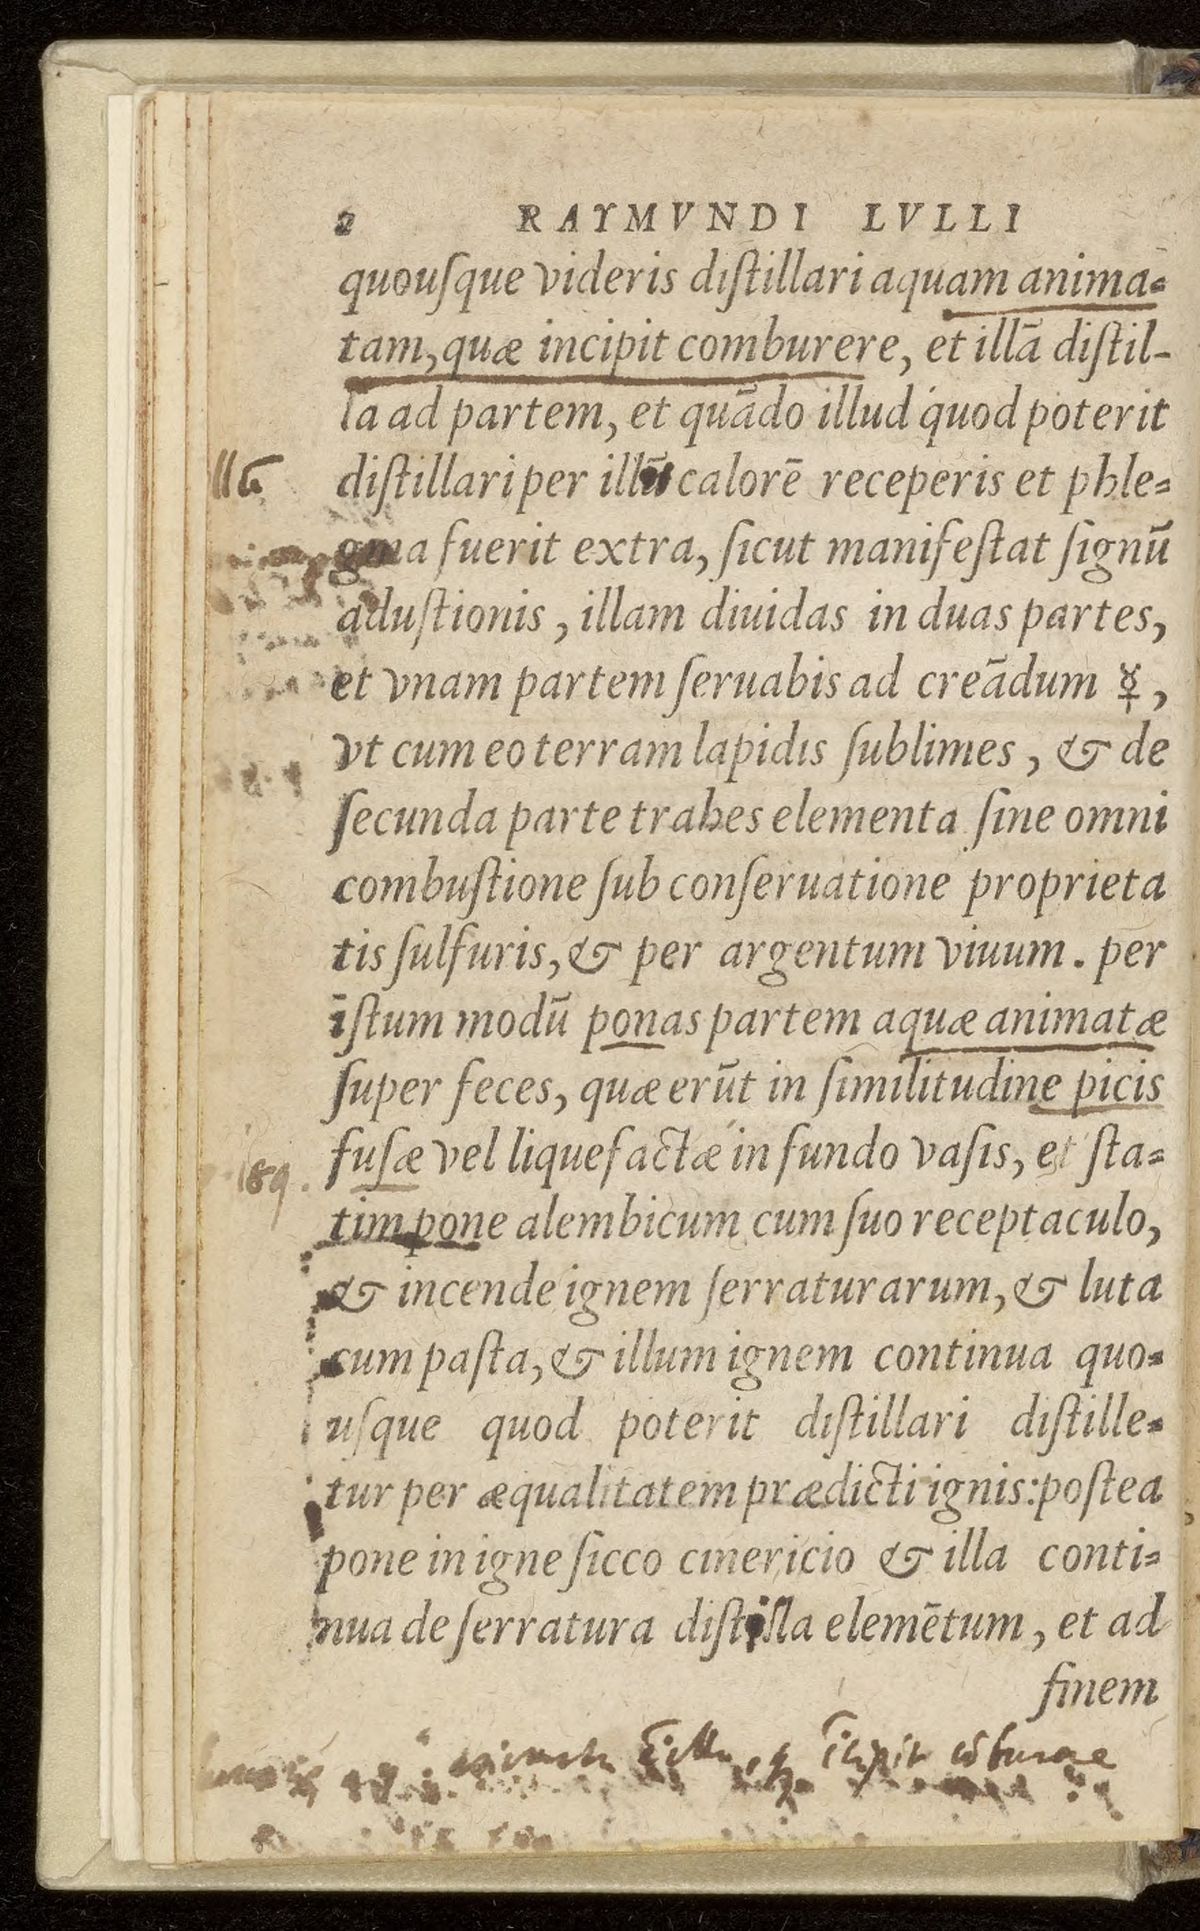 2 RAYMVNDI LVLLI
quouſque videris diſtillari aquam anima-
tam, quæ incipit comburere, et illā diſtil-
la ad partem, et quādo illud quod poterit
diſtillari per illū calorē receperis et phle-
gma fuerit extra, ſicut manifeſtat ſignū
aduſtionis, illam diuidas in duas partes,
et vnam partem ſeruabis ad creādum ☿,
vt cum eo terram lapidis ſublimes, & de
ſecunda parte trahes elementa ſine omni
combuſtione ſub conſeruatione proprieta
tis ſulfuris, & per argentum viuum. per
iſtum modū ponas partem aquæ animatæ
ſuper feces, quæ erūt in ſimilitudine picis
fuſæ vel liquefactæ in fundo vaſis, et ſta-
tim pone alembicum cum ſuo receptaculo,
& incende ignem ſerraturarum, & luta
cum paſta, & illum ignem continua quo-
uſque quod poterit diſtillari diſtille-
tur per æqualitatem prædicti ignis: poſtea
pone in igne ſicco cinericio & illa conti-
nua de ſerratura diſtilla elemētum, et ad
finem